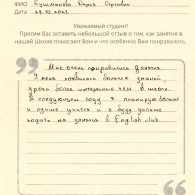 ФИО Кузьминова Дарья Сергеевна
Дата 29.05.2023
Уважаемый студент!
Просим Вас оставить небольшой отзыв о том, как занятие в
нашей Школе помогают Вам и что особенно Вам понравилось.
Мне очень понравились занятия.
У меня появилось больше знаний
чем в школе.
В следующем году я планирую больше
и лучше учится и я буду дальше
ходить на занятия в English club.